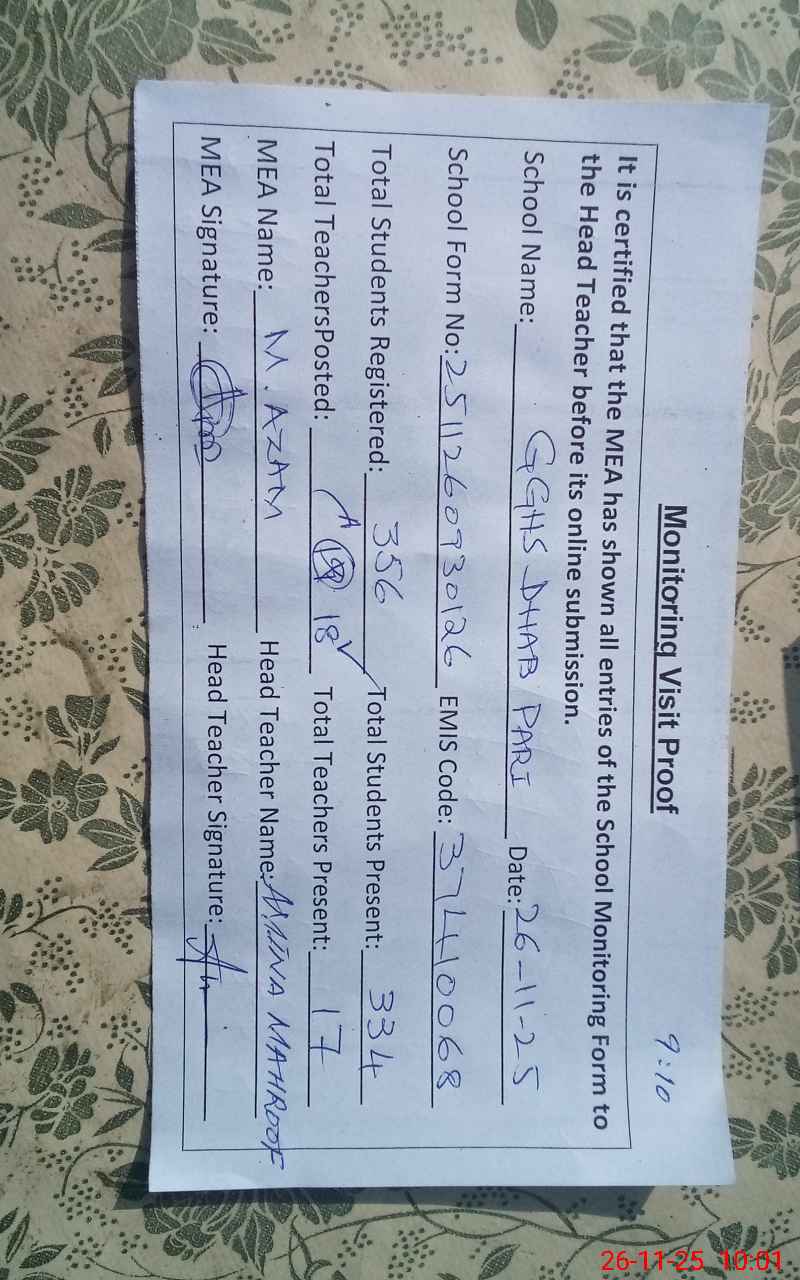 9:10
Monitoring Visit Proof
It is certified that the MEA has shown all entries of the School Monitoring Form to
the Head Teacher before its online submission.
School Name: GGHS DHAB PARI Date: 26-11-25
School Form No: 2511260930126 EMIS Code: 37410068
Total Students Registered: 356 Total Students Present: 334
Total TeachersPosted: 18 Total Teachers Present: 17
MEA Name: M. AZAM Head Teacher Name: AMINA MAHROOF
MEA Signature: Head Teacher Signature:
26-11-25 10:01